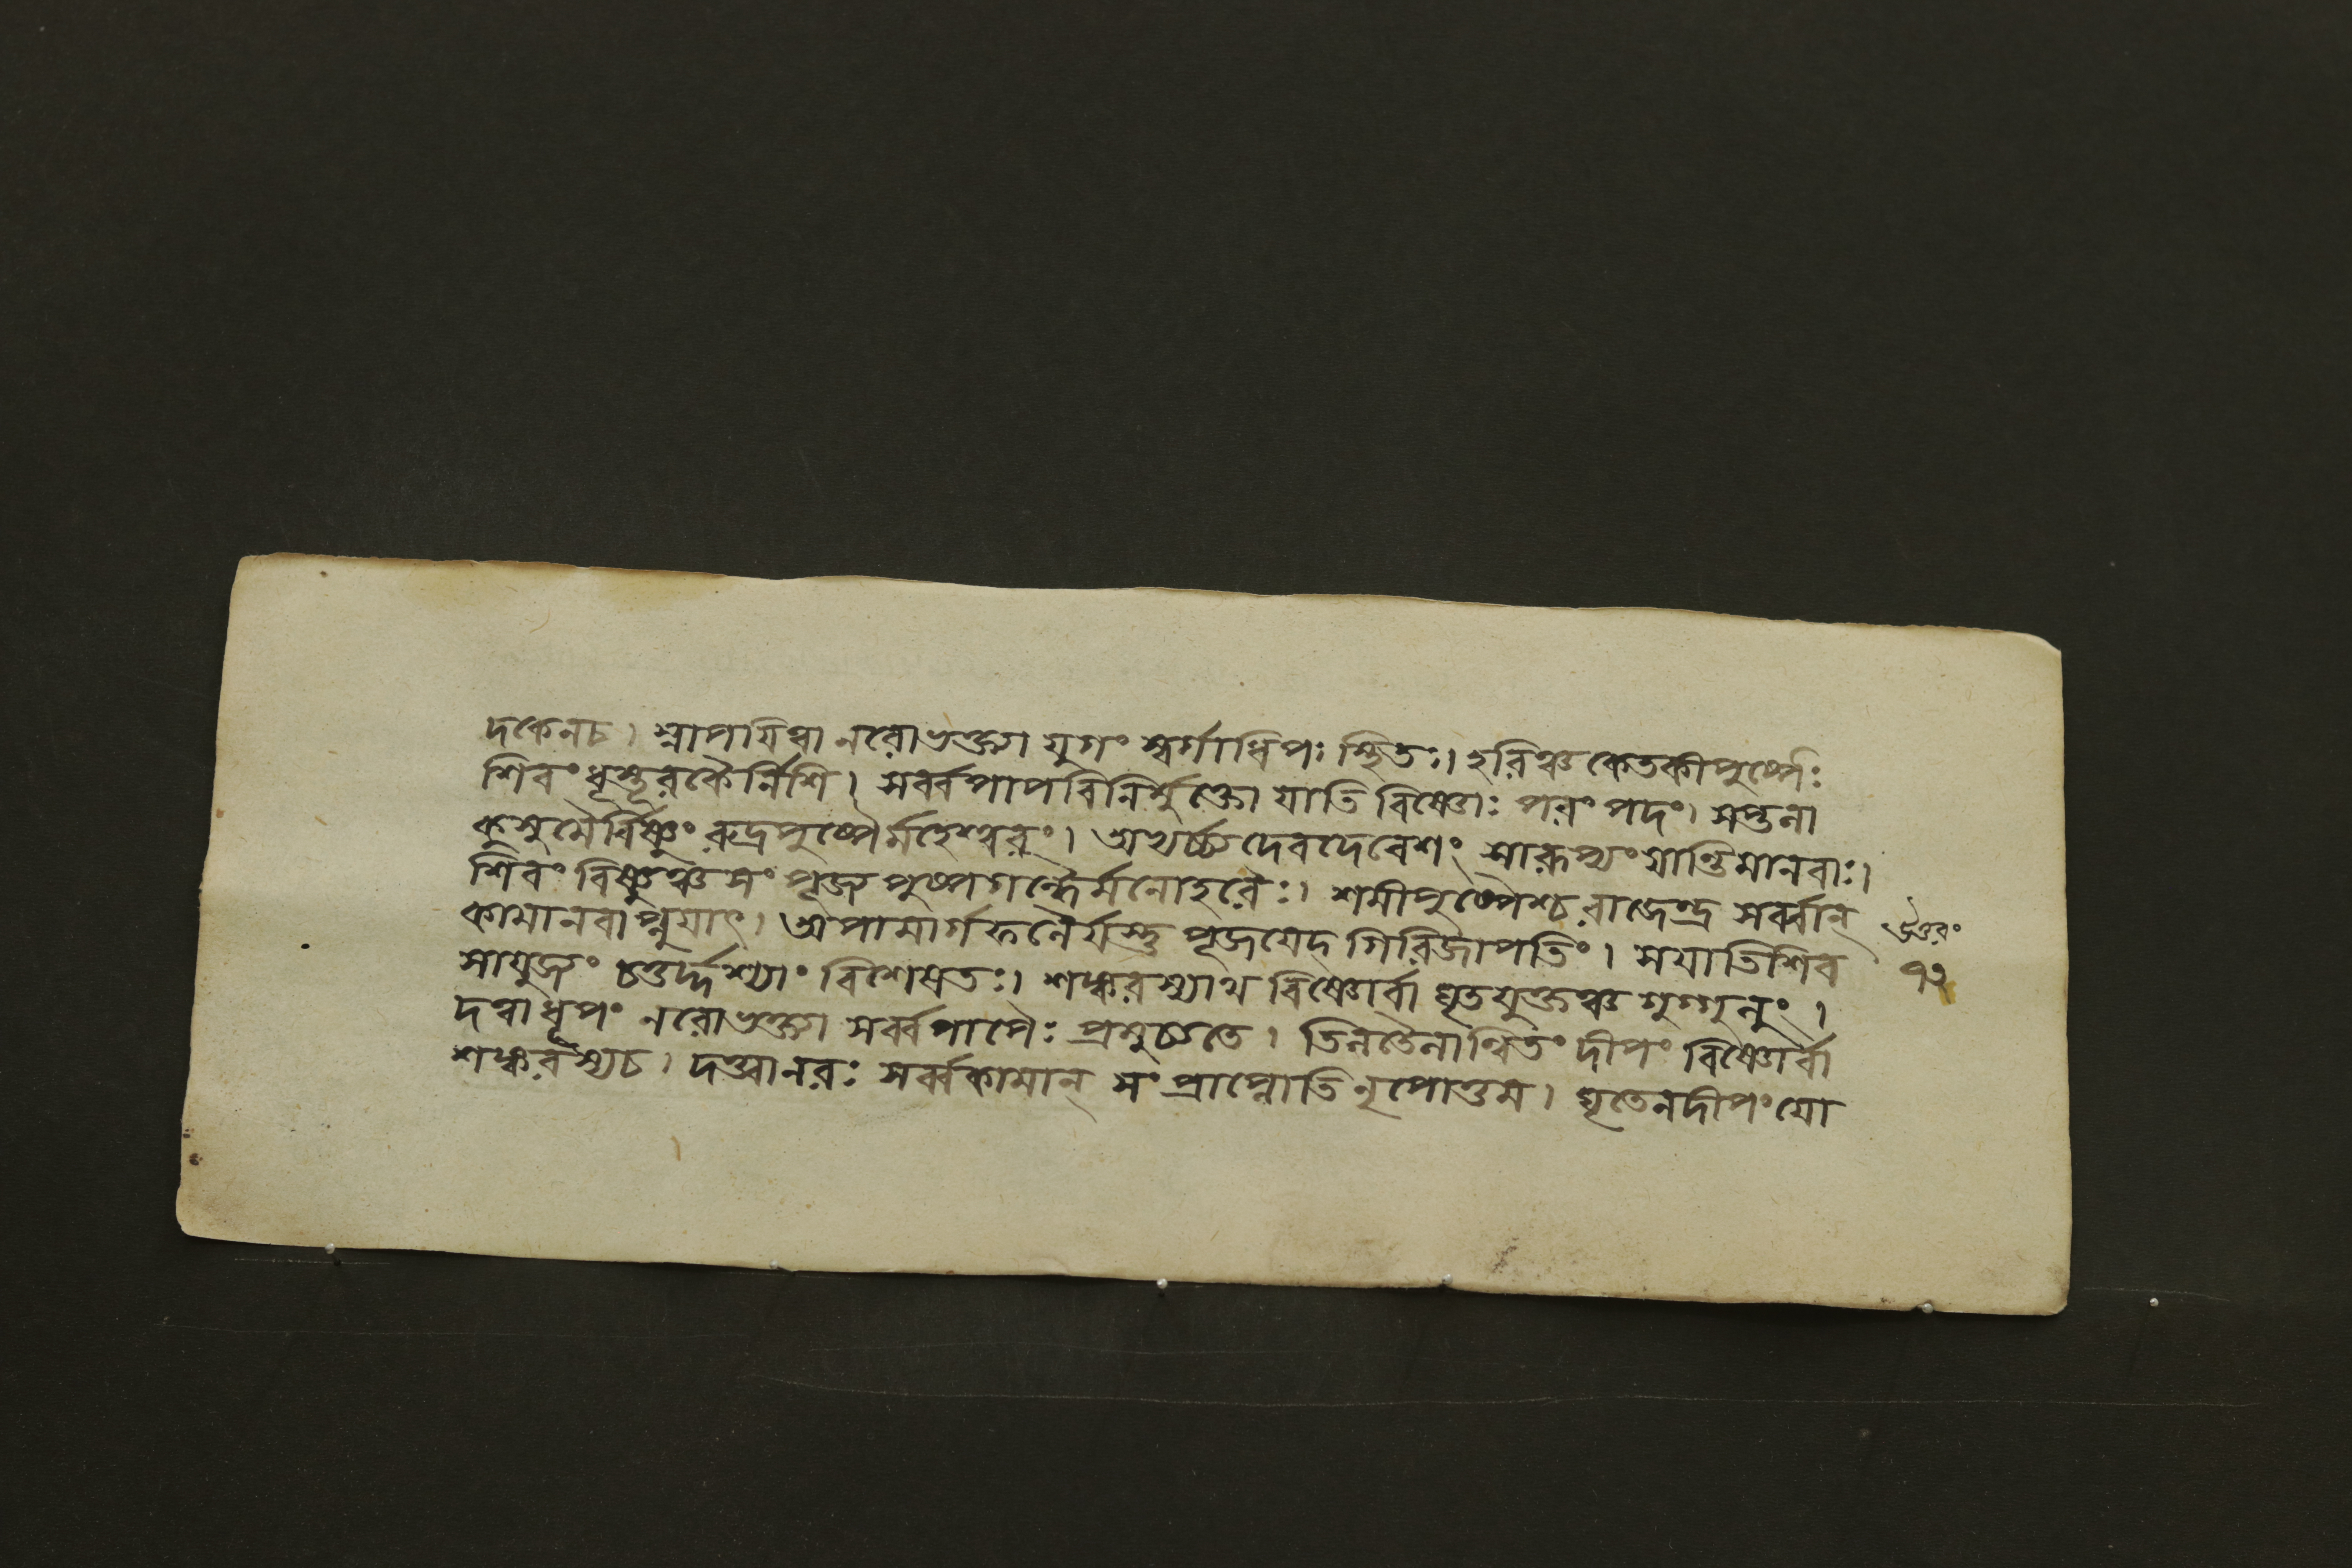 দকেনচ। স্নাপযিত্বা নরোভক্ত্যা যুগং স্বর্গাধিপঃ স্থিতঃ। হরিঞ্চ কেতকীপুষ্পৈঃ
শিবং ধুস্তূরকৈর্নিশি। সর্ব্বপাপবিনির্ম্মুক্তো যাতি বিষ্ণোঃ পরং পদং।
কুসুমৈর্বিষ্ণুং রুদ্রপুষ্পৈর্মহেশ্বরং। দেবদেবেশং সারূপ্যং যান্তিমানবাঃ।
শিবং বিষ্ণুঞ্চ সং পূজ্য পুষ্পগন্ধৈর্মনোহরৈঃ। শমীপুষ্পৈশ্চ রাজেন্দ্র সর্ব্বান্
কামানবাপ্নুযাৎ। অপামার্গ পূজযেদ্ গিরিজাপতিং। সযাতিশিব
সাযুজ্যং চতুর্দ্দশ্যাং বিশেষতঃ। শঙ্করস্যাথ বিষ্ণোর্বা ঘৃতযুক্তঞ্চ গুগ্গুলুং।
দত্বাধূপং নরোভক্ত্যা সর্ব্বপাপৈঃ প্রমুচ্যতে। তিলতৈলান্বিতং দীপং বিষ্ণোর্বা
শঙ্করস্যচ। দত্ত্বানরঃ সর্ব্বকামান্ সং প্রাপ্নোতি নৃপোত্তম। ঘৃতেনদীপং যো